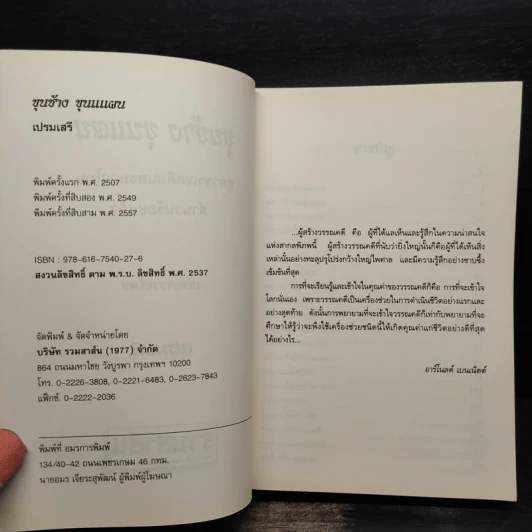 ขุนช้าง ขุนแผน
เปรมเสรี
พิมพ์ครั้งแรก พ.ศ. 2507
พิมพ์ครั้งที่สิบสอง พ.ศ. 2549
พิมพ์ครั้งที่สิบสาม พ.ศ. 2557
ISBN : 978-616-7540-27-6
สงวนลิขสิทธิ์ ตาม พ.ร.บ. ลิขสิทธิ์ พ.ศ. 2537
จัดพิมพ์ & จัดจำหน่ายโดย
บริษัท รวมสาส์น (1977) จำกัด
864 ถนนมหาไชย วังบูรพา กรุงเทพฯ 10200
โทร. 0-2226-3808, 0-2221-6483, 0-2623-7843
แฟ็กซ์. 0-2222-2036
พิมพ์ที่ อมรการพิมพ์
134/40-42 ถนนเพชรเกษม 46 กทม.
นายอมร เจียระสุพัฒน์ ผู้พิมพ์ผู้โฆษณา
...ผู้สร้างวรรณคดี คือ ผู้ที่ได้แลเห็นและรู้สึกในความน่าสนใจ
แห่งสากลพิภพนี้ ผู้สร้างวรรณคดีที่นับว่ายิ่งใหญ่นั้นก็คือผู้ที่ได้เห็นสิ่ง
เหล่านั้นอย่างทะลุปรุโปร่งกว้างใหญ่ไพศาล และมีความรู้สึกอย่างซาบซึ้ง
เข้มข้นที่สุด
การที่จะเรียนรู้และเข้าใจในคุณค่าของวรรณคดีก็คือ การที่จะเข้าใจ
โลกนั่นเอง เพราะวรรณคดีเป็นเครื่องช่วยในการดำเนินชีวิตอย่างแรกและ
อย่างสุดท้าย ดังนั้นการพยายามที่จะเข้าใจวรรณคดีก็เท่ากับพยายามที่จะ
ศึกษาให้รู้ว่าจะพึงใช้เครื่องช่วยชนิดนี้ให้เกิดคุณค่าแก่ชีวิตอย่างดีที่สุด
ได้อย่างไร...
อาร์โนลด์ เบนเน็ตต์